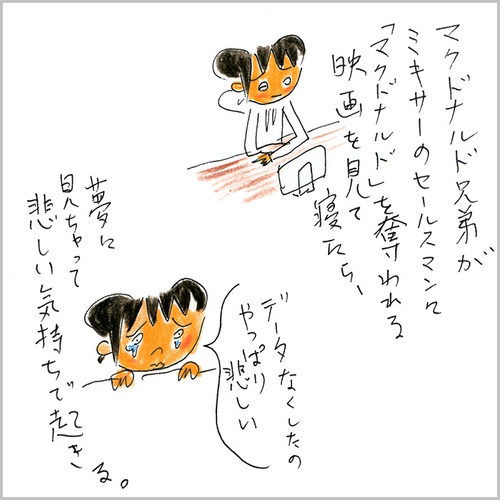 マクドナルド兄弟が
ミキサーのセールスマンに
「マクドナルド」を奪われる
映画を見て
寝たら、
データなくしたの
やっぱり
悲しい
夢に
見ちゃって
悲しい気持ちで起きる。